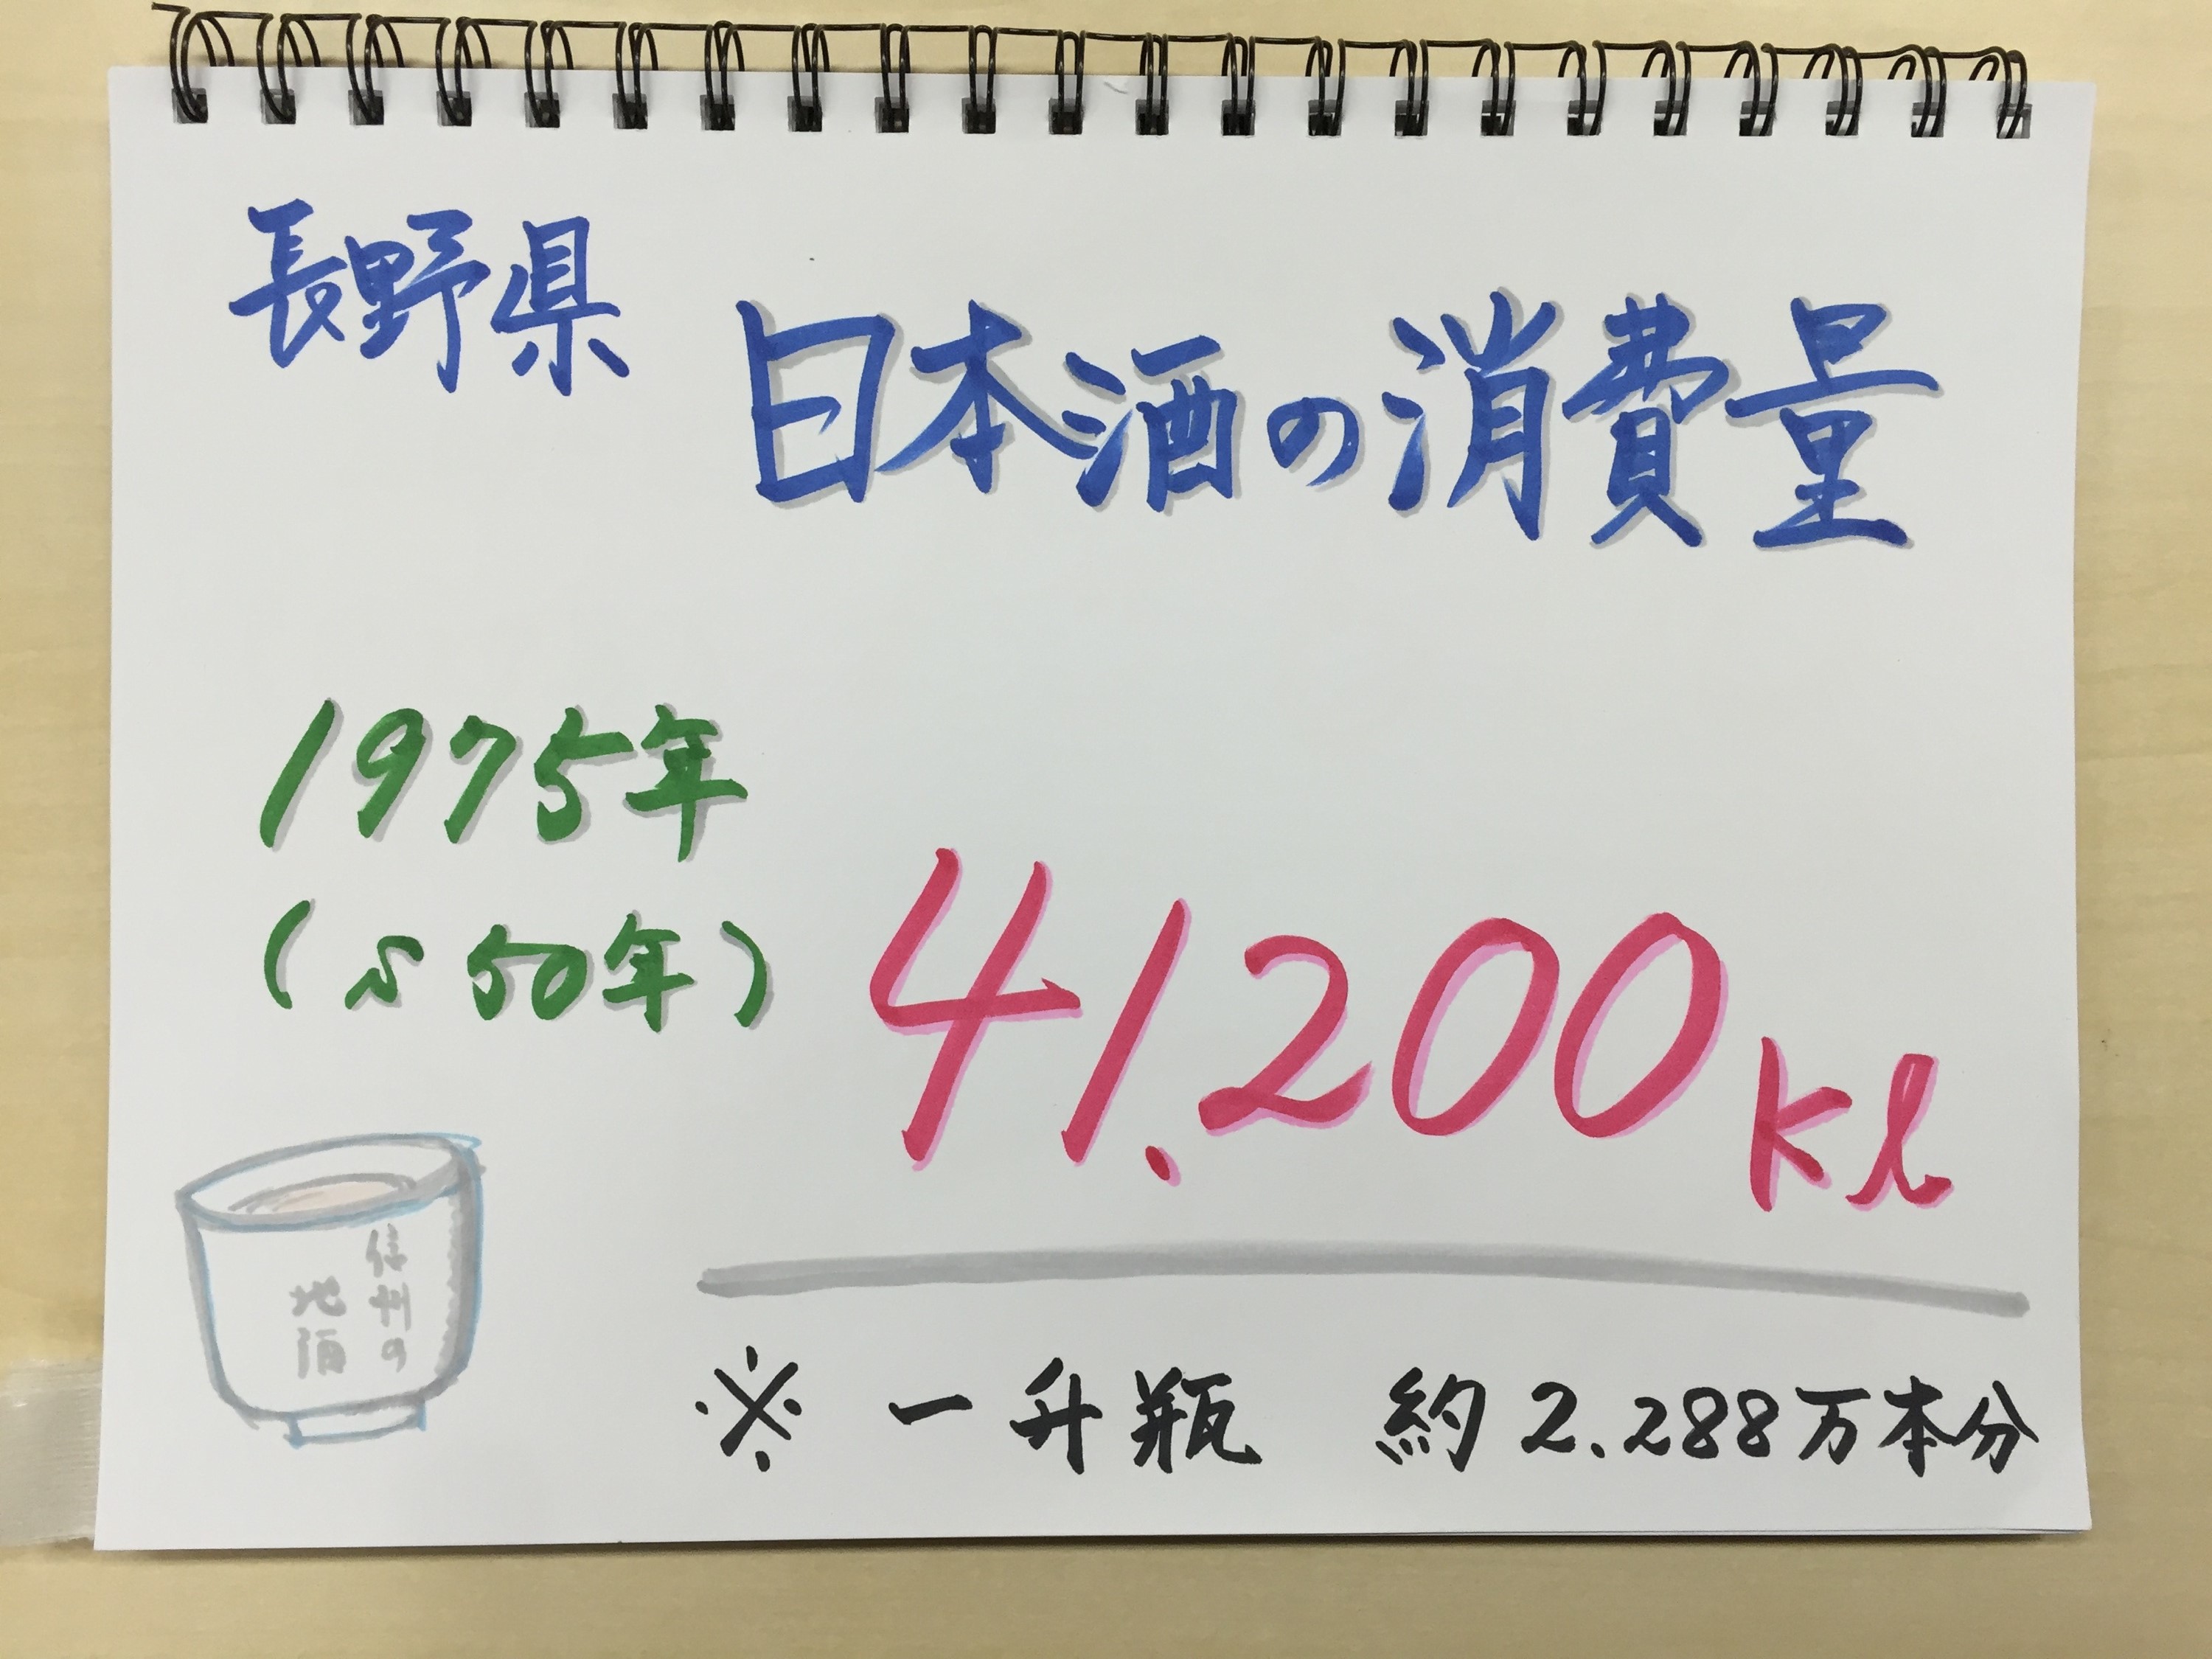 長野県
日本酒の消費量
1975年
(S50年)
41.200kl
信州の
地酒
※ 一升瓶 約2.288万本分